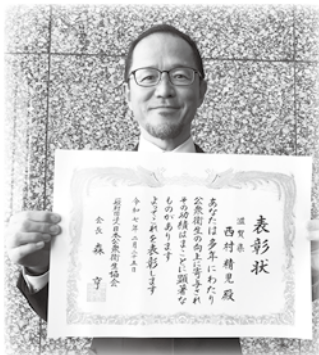 表彰状
滋賀県
西村精児殿
あなたは多年にわたり
公衆衛生の向上に寄与され
その功績はまことに顕著な
ものがあります
よってこれを表彰します
令和七年二月二十五日
一般財団法人日本公衆衛生協会
会長 森 亨